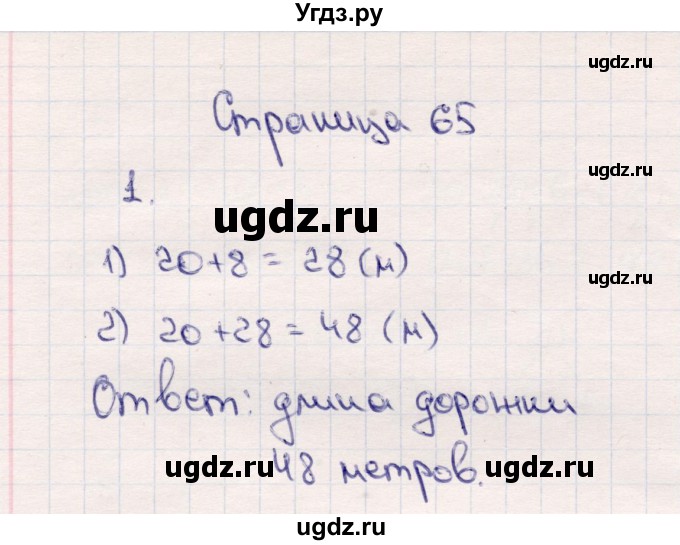 Угдз.ру
ugdz.ru
Страница 65
ugdz.ru
1.
ugdz.ru
1) 20+8=28(м)
ugdz.ru
2) 20+28=48(м)
ugdz.ru
Ответ: длина дорожки
ugdz.ru
48 метров.
ugdz.ru
ugdz.ru
ugdz.ru